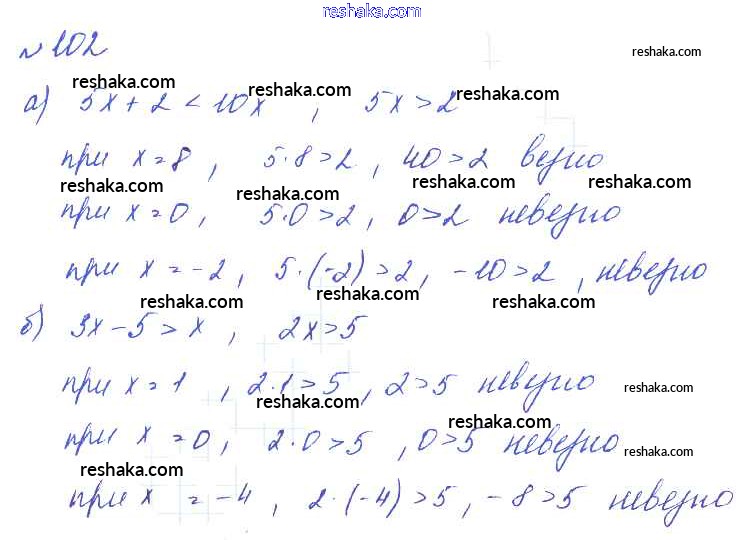 reshaka.com
№ 102
reshaka.com
reshaka.com reshaka.com reshaka.com
а) 5x + 2 < 10x , 5x > 2
при x = 8 , 5·8 > 2 , 40 > 2 верно
reshaka.com reshaka.com reshaka.com reshaka.com
при x = 0 , 5·0 > 2 , 0 > 2 неверно
при x = -2 , 5·(-2) > 2 , -10 > 2 , неверно
reshaka.com reshaka.com reshaka.com
б) 3x - 5 > x , 2x > 5
при x = 1 , 2·1 > 5 , 2 > 5 неверно
reshaka.com reshaka.com
reshaka.com
при x = 0 , 2·0 > 5 , 0 > 5 неверно
reshaka.com reshaka.com
при x = -4 , 2·(-4) > 5 , -8 > 5 неверно
reshaka.com